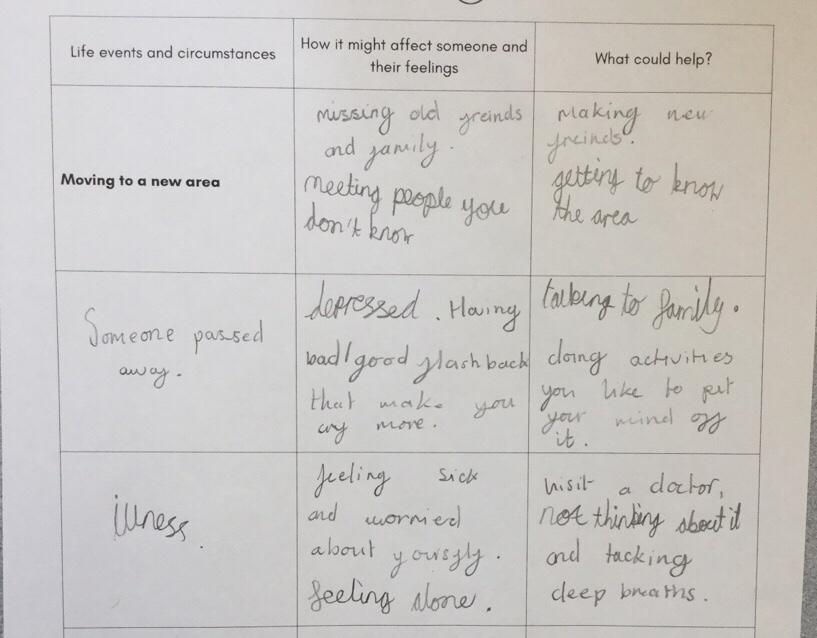 Life events and circumstances
How it might affect someone and
their feelings
What could help?
Moving to a new area
missing old greinds
and family.
meeting people you
don't know
Making new
freinds.
getting to know
the area
Someone passed
away.
depressed. Having
bad/good flashback
that make you
cry more.
talking to family.
doing activities
you like to put
your mind off
it.
illness.
feeling sick
and worried
about yoursgly.
feeling alone.
visit a doctor,
not thinking about it
and tacking
deep breaths.